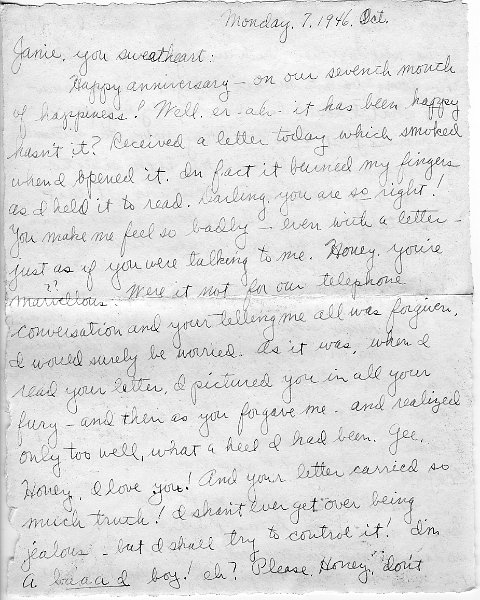 Monday, 7, 1946. Oct.
Janie, you sweatheart:
Happy anniversary - on our seventh month
of happiness! Well, er - ah - it has been happy
hasn't it? Received a letter today which smoked
when I opened it. In fact it burned my fingers
as I held it to read. Darling, you are so right!
You make me feel so badly - even with a letter -
just as if you were talking to me. Honey, you're
marvellous. Were it not for our telephone
??
conversation and your telling me all was forgiven,
I would surely be worried. As it was, when I
read your letter, I pictured you in all your
fury - and then as you forgave me - and realized
only too well, what a heel I had been. Gee,
Honey, I love you! And your letter carried so
much truth! I shan't ever get over being
jealous - but I shall try to control it! I'm
a baaad boy! eh? Please, Honey, don't